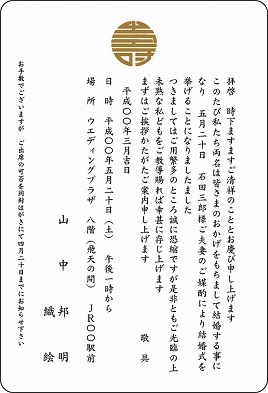 拝啓　時下ますますご清祥のこととお慶び申し上げます
このたび私たち両名は皆さまのおかげをもちまして結婚する事に
なり　五月二十日　石田三郎様ご夫妻のご媒酌により結婚式を
挙げることになりましたました
つきましてはご用繁多のところ誠に恐縮ですが是非ともご光臨の上
未熟な私どもをご教導賜れば幸甚に存じ上げます
まずはご挨拶かたがたご案内申し上げます
敬具
平成〇〇年三月吉日
日　時　平成〇〇年五月二十日（土）　午後一時から
場　所　ウエディングプラザ　八階（飛天の間）　ＪＲ〇〇駅前
山　中　邦　明
織　絵
お手数でございますが　ご出席の可否を同封はがきにて四月二十日までにお知らせ下さい